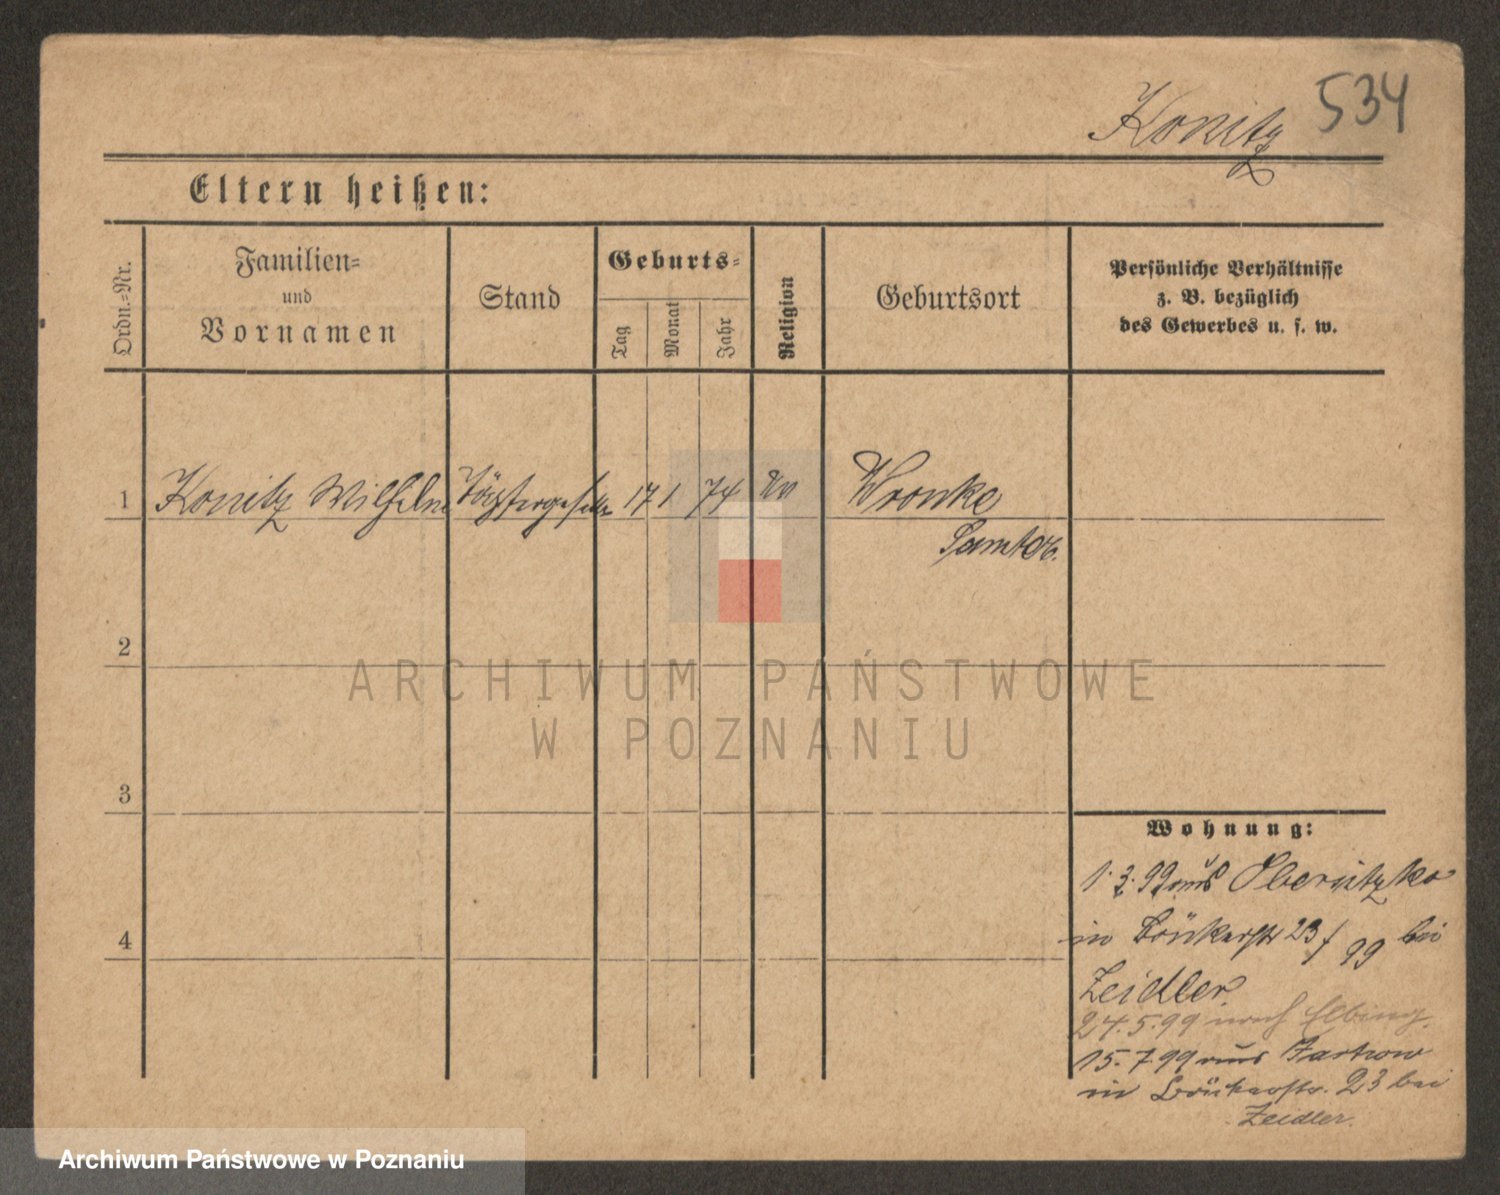 Konitz 534
Eltern heißen:
Ordn.=Nr.
Familien=
und
Vornamen
Stand
Geburts=
Tag
Monat
Jahr
Religion
Geburtsort
Persönliche Verhältnisse
z. B. bezüglich
des Gewerbes u. s. w.
1 Konitz Wilhelm Töpfergeselle 17 1 74 Ev Wronke
Samter.
2
3
4
ARCHIWUM PAŃSTWOWE
W POZNANIU
Wohnung:
1.3.99 aus Obersitzko
in 23 99 bei
Zeidler.
24.5.99 nach Elbing.
15.7.99 aus Jastrow
in 23 bei
Zeidler.
Archiwum Państwowe w Poznaniu